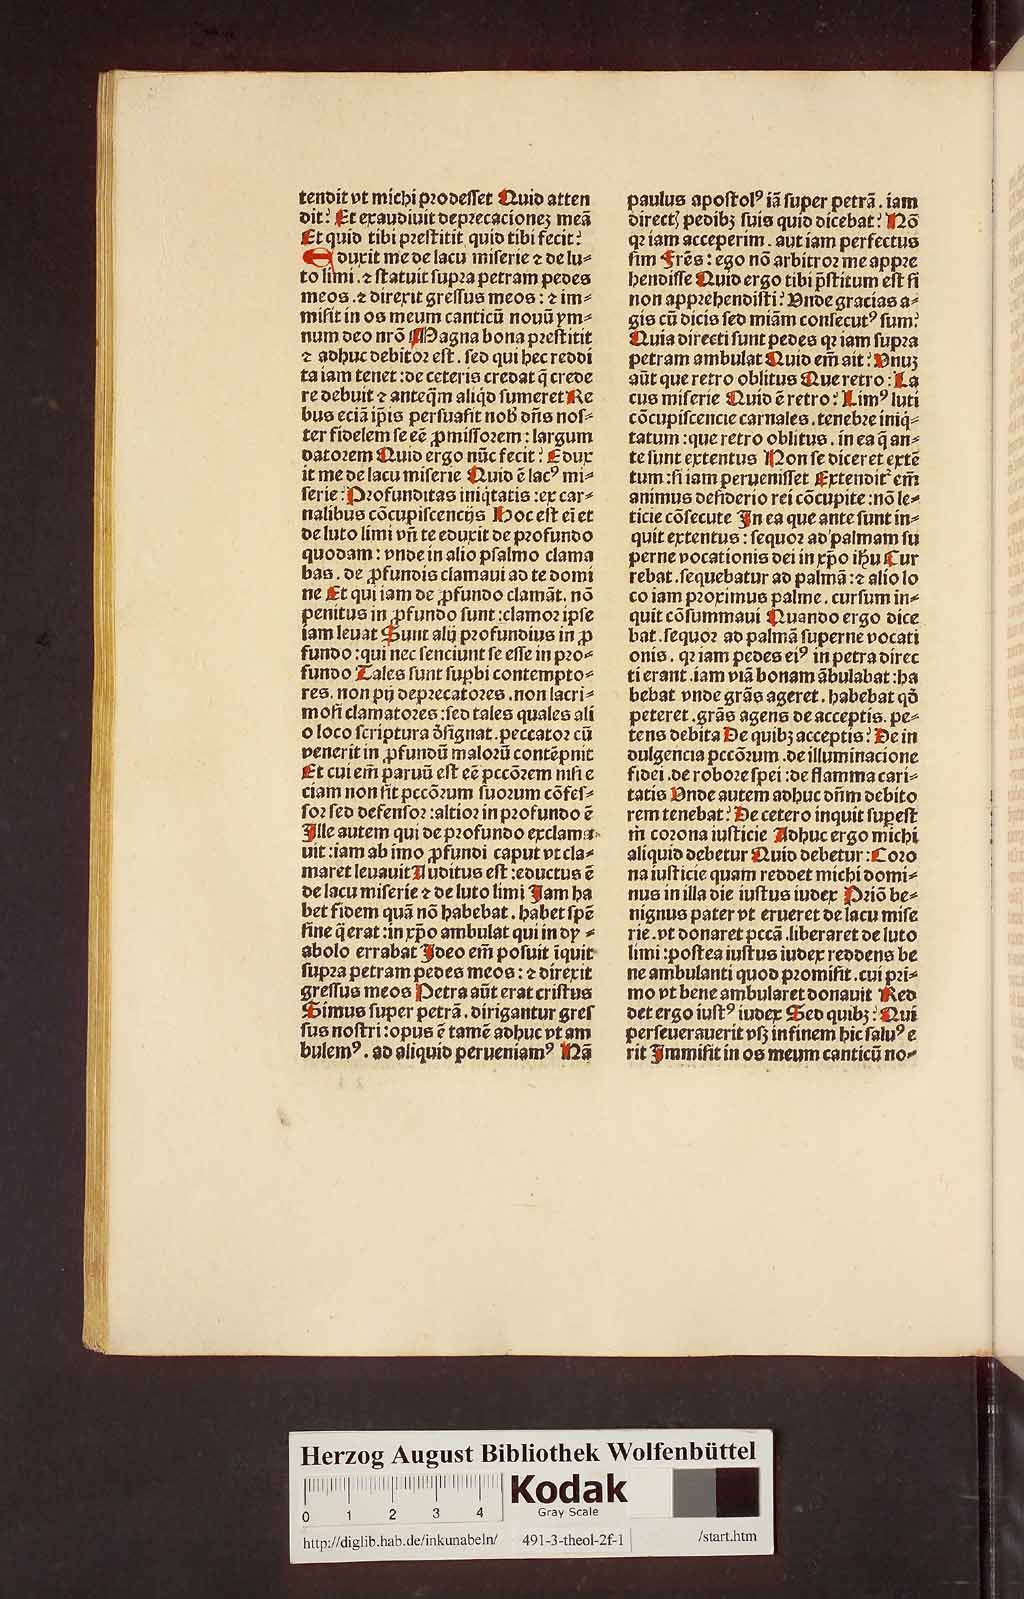 tendit vt michi prodesset Quid atten
dit? Et exaudiuit deprecacionez meā
Et quid tibi prestitit quid tibi fecit?
Eduxit me de lacu miserie ⁊ de lu⸗
to limi . ⁊ statuit supra petram pedes
meos . ⁊ direxit gressus meos : ⁊ im⸗
misit in os meum canticū nouū ym⸗
num deo nrō Magna bona prestitit
⁊ adhuc debitor est . sed qui hec reddi
ta iam tenet : de ceteris credat q̄ crede
re debuit ⁊ anteqm̄ aliqd sumeret Re
bus eciā ip̄is persuasit nob̄ dn̄s nos⸗
ter fidelem se eē ꝓmissorem : largum
datorem Quid ergo nūc fecit? Edux
it me de lacu miserie Quid ē lacꝰ mi⸗
serie : Profunditas iniq̇tatis : ex car⸗
nalibus cōcupiscencijs Hoc est ei et
de luto limi vn̄ te eduxit de profundo
quodam : vnde in alio psalmo clama
bas . de ꝓfundis clamaui ad te domi
ne Et qui iam de ꝓfundo clamāt . nō
penitus in ꝓfundo sunt : clamor ipse
iam leuat Sunt alij profundius in ꝓ
fundo : qui nec senciunt se esse in pro⸗
fundo Tales sunt supbi contempto⸗
res . non pij deprecatores . non lacri⸗
mosi clamatores : sed tales quales ali
o loco scriptura d̄signat . peccator cū
venerit in ꝓfundū malorū contēpnit
Et cui em̄ paruū est eē pccōrem nisi e
ciam non sit pccōrum suorum cōfes⸗
sor sed defensor : altior in profundo ē
Ille autem qui de profundo exclama
uit : iam ab imo ꝓfundi caput vt cla⸗
maret leuauit Auditus est : eductus ē
de lacu miserie ⁊ de luto limi Iam ha
bet fidem quā nō habebat . habet spē
sine q̄ erat : in xp̄o ambulat qui in dy⸗
abolo errabat Ideo em̄ posuit īquit
supra petram pedes meos : ⁊ direxit
gressus meos Petra aūt erat cristus
Simus super petrā . dirigantur gres
sus nostri : opus ē tamē adhuc vt am
bulemꝰ . ad aliquid perueniamꝰ Nā
paulus apostolꝰ iā super petrā . iam
directꝭ pedibꝫ suis quid dicebat? Nō
qꝛ iam acceperim . aut iam perfectus
sim Frēs : ego nō arbitror me appre
hendisse Quid ergo tibi p̄stitum est si
non apprehendisti? Vnde gracias a⸗
gis cū dicis sed miām consecutꝰ sum?
Quia directi sunt pedes qꝛ iam supra
petram ambulat Quid em̄ ait? Vnuꝫ
aūt que retro oblitus Que retro : La
cus miserie Quid ē retro? Limꝰ luti
cōcupiscencie carnales . tenebre iniq̇⸗
tatum : que retro oblitus . in ea q̄ an⸗
te sunt extentus Non se diceret extē
tum : si iam peruenisset Extenditᷣ em̄
animus desiderio rei cōcupite : nō le⸗
ticie cōsecute In ea que ante sunt in⸗
quit extentus : sequor ad palmam su
perne vocationis dei in xp̄o ihū Cur
rebat . sequebatur ad palmā : ⁊ alio lo
co iam proximus palme . cursum in⸗
quit cōsummaui Quando ergo dice
bat . sequor ad palmā superne vocati
onis . qꝛ iam pedes eiꝰ in petra direc
ti erant . iam viā bonam ābulabat : ha
bebat vnde grās ageret . habebat qd̄
peteret . grās agens de acceptis . pe⸗
tens debita De quibꝫ acceptis? De in
dulgencia pccōrum . de illuminacione
fidei . de robore spei : de flamma cari⸗
tatis Vnde autem adhuc dn̄m debito
rem tenebat? De cetero inquit supest
m̄ corona iusticie Adhuc ergo michi
aliquid debetur Quid debetur : Coro
na iusticie quam reddet michi domi⸗
nus in illa die iustus iudex Priō be⸗
nignus pater vt erueret de lacu mise
rie . vt donaret pccā . liberaret de luto
limi : postea iustus iudex reddens be
ne ambulanti quod promisit . cui pri⸗
mo vt bene ambularet donauit Red
det ergo iustꝰ iudex Sed quibꝫ? Qui
perseuerauerit vsꝫ infinem hic saluꝰ e
rit Immisit in os meum canticū no⸗
Herzog August Bibliothek Wolfenbüttel
0 1 2 3 4
Kodak
Gray Scale
http://diglib.hab.de/inkunabeln/ 491-3-theol-2f-1 /start.htm